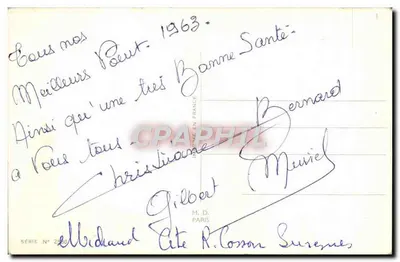 Tous nos
Meilleurs Voeux. 1963.
Ainsi qu'une très Bonne Santé.
a Vous tous.
Christiane Bernard
Gilbert Muriel
Michaud Cité R. Cosson Suresnes
CPARAMA
M. D.
PARIS
SERIE N°